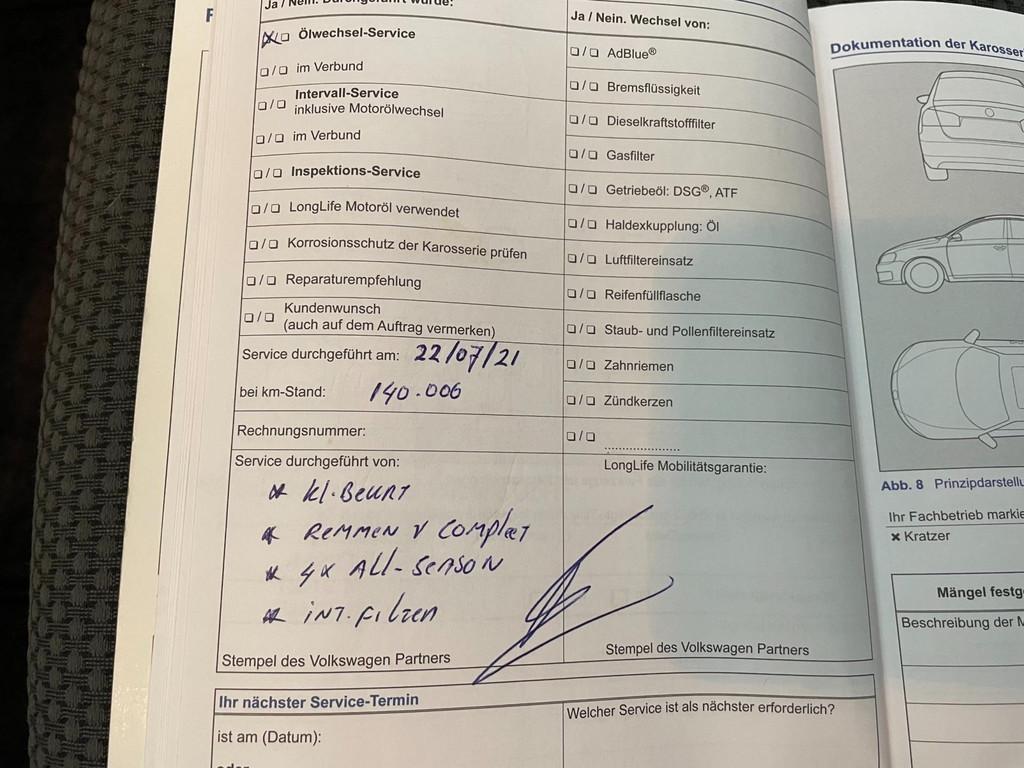 Ja / Nein. Durchgeführt wurde:
Ölwechsel-Service
im Verbund
Intervall-Service
inklusive Motorölwechsel
im Verbund
Inspektions-Service
LongLife Motoröl verwendet
Korrosionsschutz der Karosserie prüfen
Reparaturempfehlung
Kundenwunsch
(auch auf dem Auftrag vermerken)
Service durchgeführt am: 22/07/21
bei km-Stand: 140.006
Rechnungsnummer:
Service durchgeführt von:
* kl. BEURT
* REMMEN V COMPLEET
* 4X ALL-SEASON
* INT. FILTER
Stempel des Volkswagen Partners
Ja / Nein. Wechsel von:
AdBlue®
Bremsflüssigkeit
Dieselkraftstofffilter
Gasfilter
Getriebeöl: DSG®, ATF
Haldexkupplung: Öl
Luftfiltereinsatz
Reifenfüllflasche
Staub- und Pollenfiltereinsatz
Zahnriemen
Zündkerzen
LongLife Mobilitätsgarantie:
Stempel des Volkswagen Partners
Ihr nächster Service-Termin
ist am (Datum):
Welcher Service ist als nächster erforderlich?
Dokumentation der Karosser
Abb. 8 Prinzipdarstellu
Ihr Fachbetrieb markie
× Kratzer
Mängel festg
Beschreibung der M